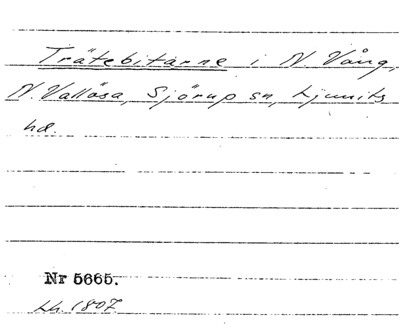 Trätebitarne i N. Vång,
N. Vallösa, Sjörup sn, Ljunits
hd.
Nr 5665.
Lh. 1807